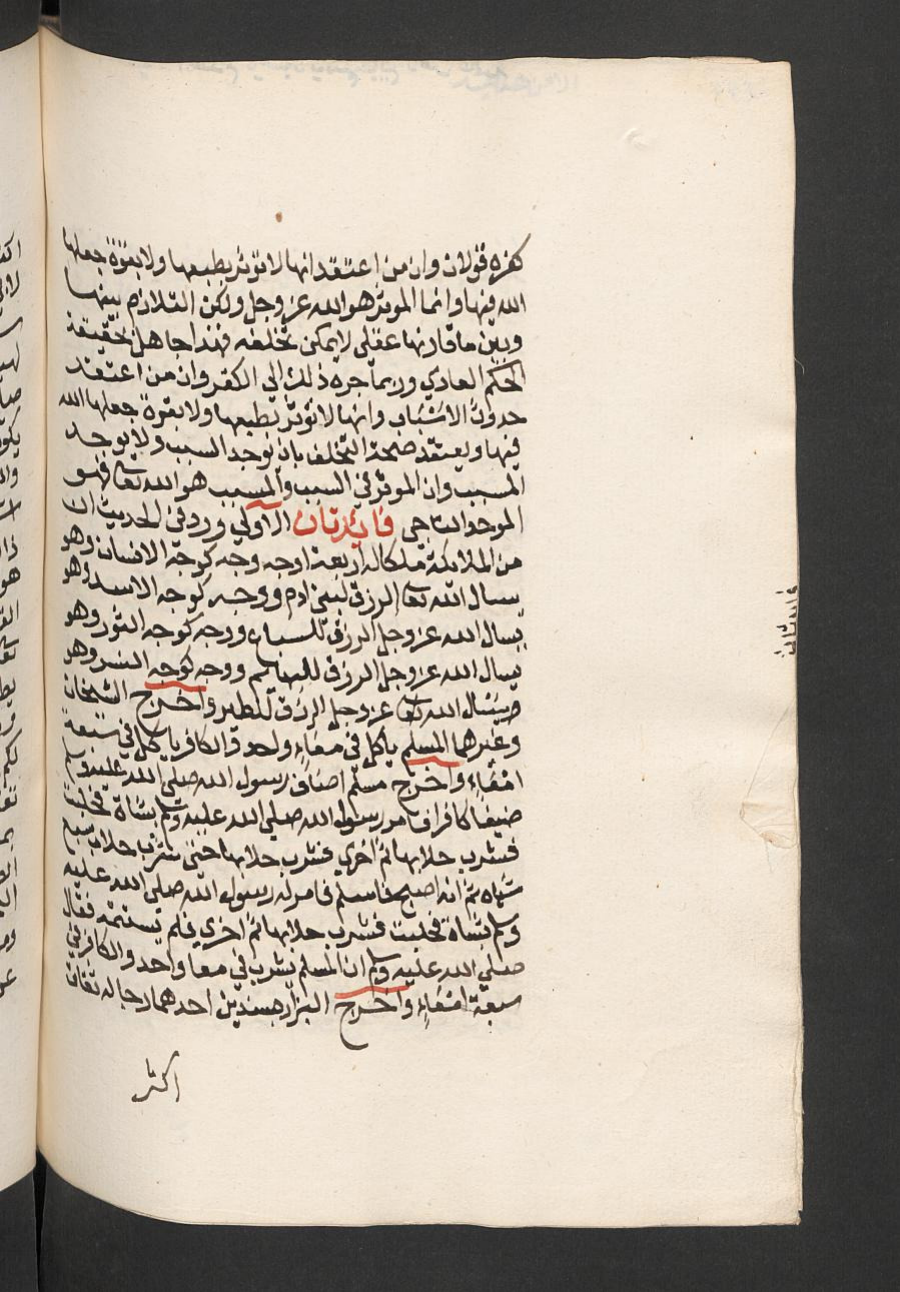 كفره قولان وان من اعتقد انها لا توثر بطبعها ولا بقوة جعلها
الله فيها وانما الموثر هو الله عز وجل ولكن التلازم بينها
وبين ما قارنها عقلي لا يمكن تخلفه فهذا جاهل بحقيقة
الحكم العادي وربما جره ذلك الي الكفر وان من اعتقد
حدوث الاسباب وانها لا توثر بطبعها ولا بقوة جعلها الله
فيها ويعتقد صحة التخلف بان يوجد السبب ولا يوجد
المسبب وان الموثر في السبب والمسبب هو الله تعالى فهو
الموحد الناجي فايدتان الاولي ورد في الحديث ان
من الملائكة ملكا له اربعة اوجه وجه كوجه الانسان وهو
يسال الله تعالى الرزق لبني ادم ووجه كوجه الاسد وهو
يسال الله عز وجل الرزق للسباع ووجه كوجه الثور وهو
يسال الله عز وجل الرزق للبهائم ووجه كوجه النسر وهو
يسئال الله تعالى عز وجل الرزق للطير واخرج الشيخان
وغيرهما المسلم ياكل في معاء واحد والكافر ياكل في سبعة
امعاء واخرج مسلم اضاف رسول الله صلي الله عليه وسلم
ضيفا كافرا فامر رسول الله صلي الله عليه وسلم بشاة فحلبت
فشرب حلابها ثم اخري فشرب حلابها حتى شرب حلاب سبع
شياه ثم انه اصبح فاسلم فامر له رسول الله صلي الله عليه
وسلم بشاة فحلبت فشرب حلابها ثم اخري فلم يستتمه فقال
صلي الله عليه وسلم ان المسلم يشرب في معا واحد والكافر في
سبعة امعاء واخرج البزار بسندين احدهما رجاله ثقات
اكثر